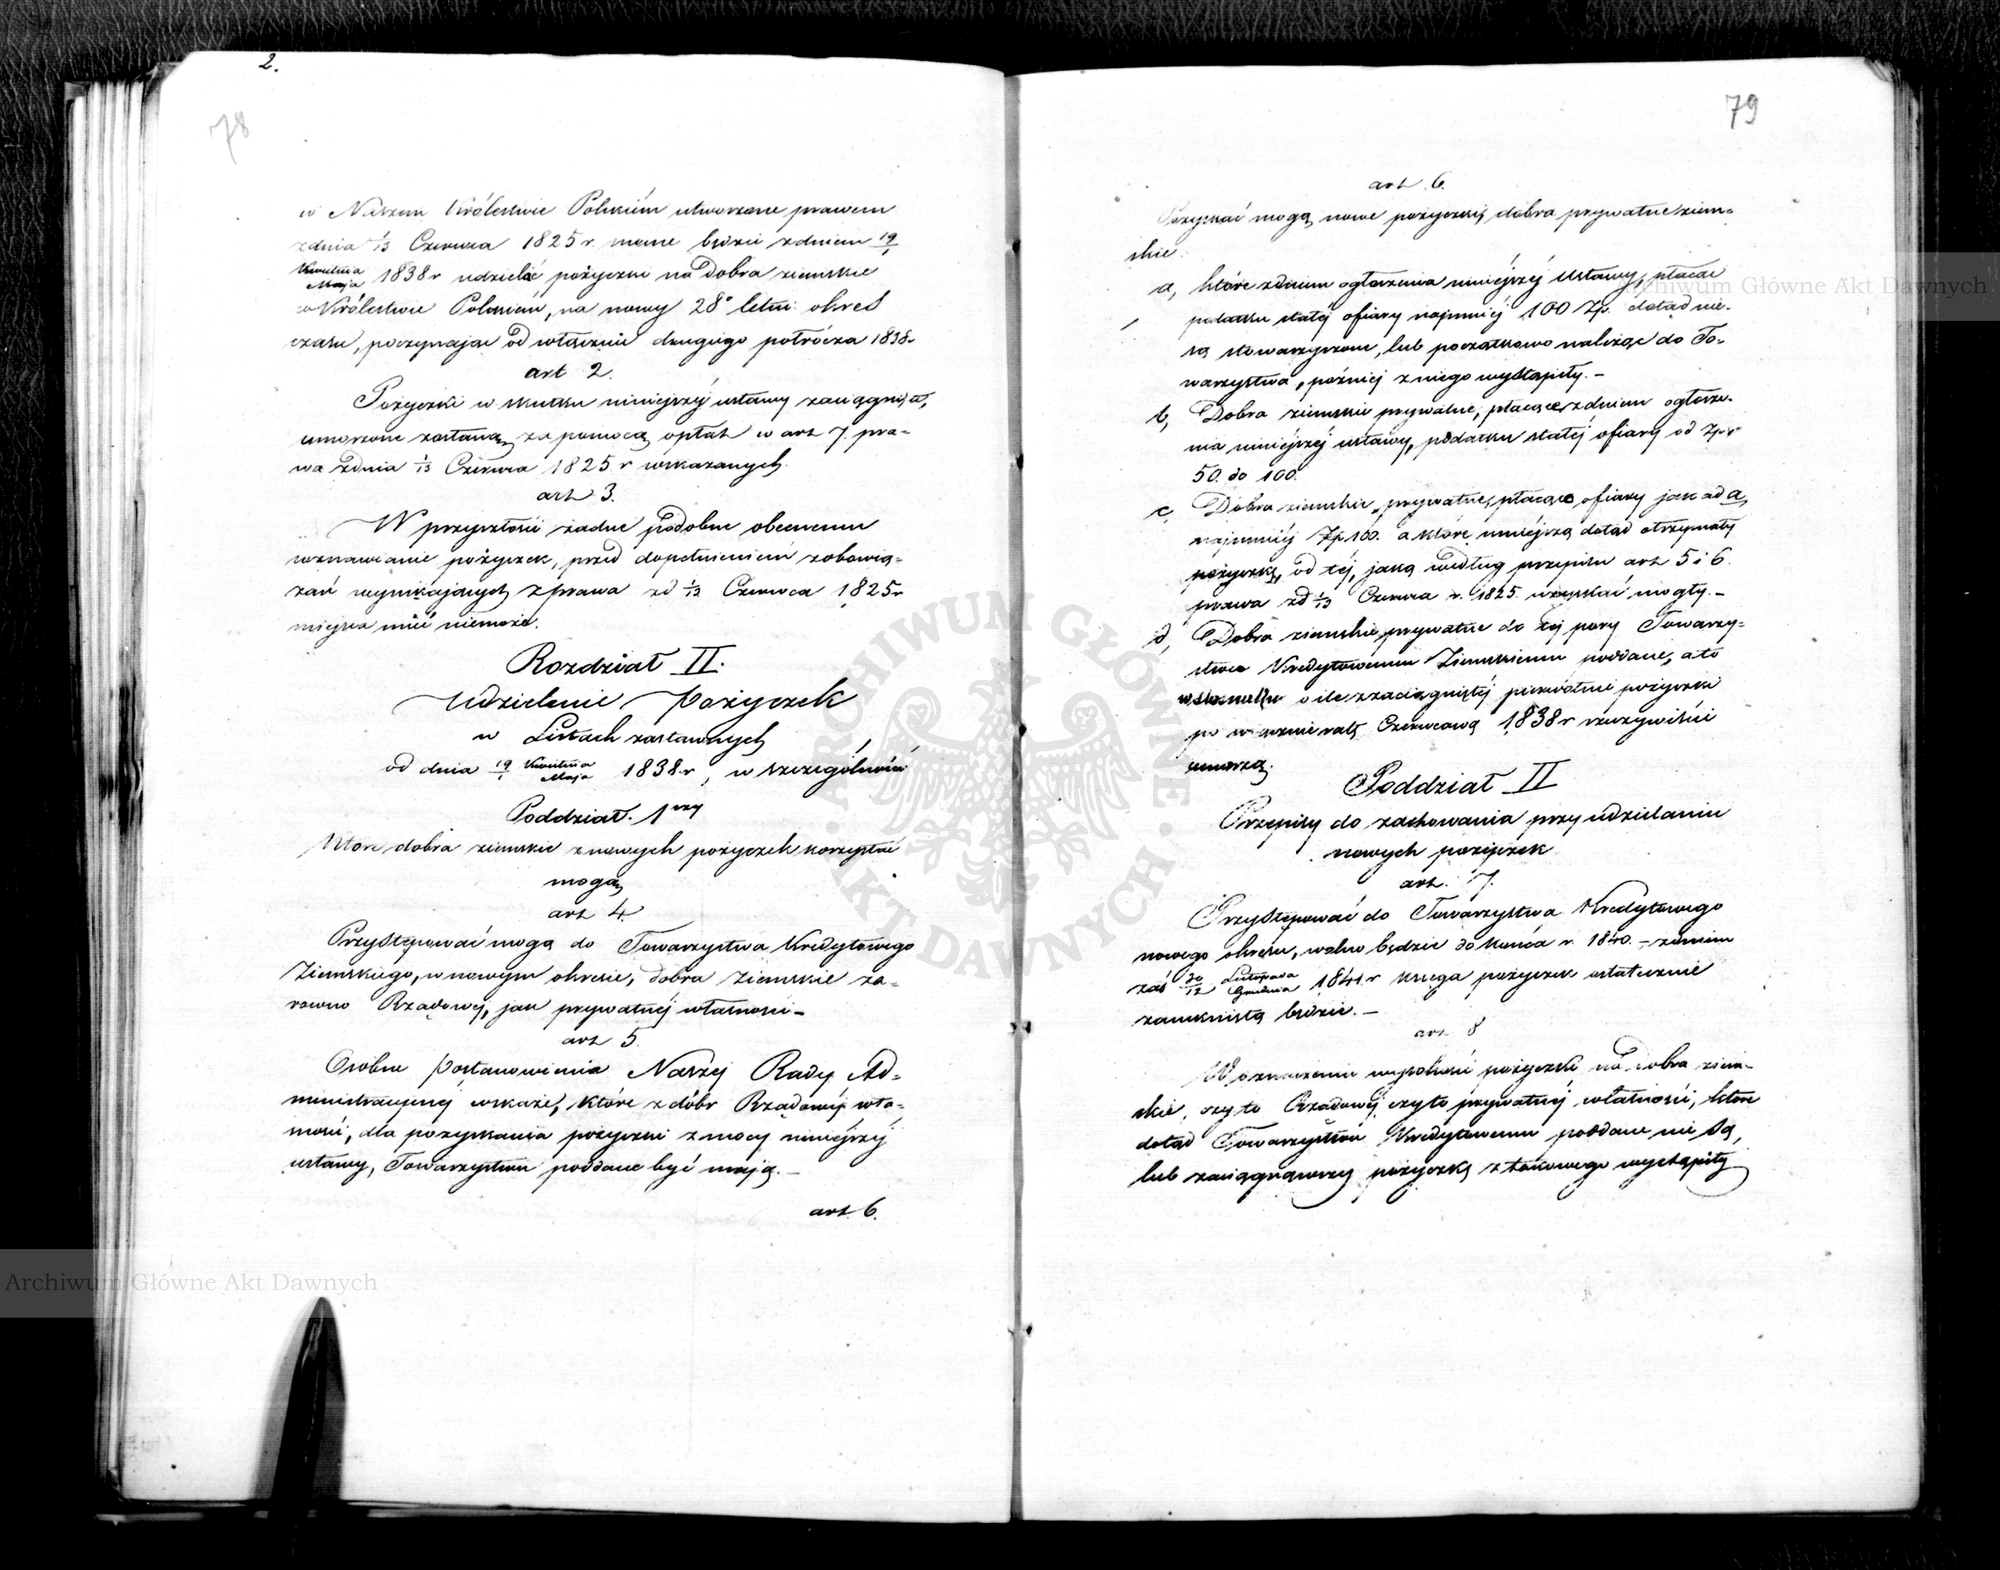 2.
78
w Naszem Królestwie Polskiém utworzone prawem
z dnia 1/13 Czerwca 1825 r. mocne będzie z dniem 19/1
Kwietnia/Maja 1838 r udzielać pożyczki na Dobra ziemskie
w Królestwie Polskiem, na nowy 28o letni okres
czasu, poczynając od włącznie drugiego półrócza 1838.
art 2.
Pożyczki w skutku niniejszéj ustawy zaciągnięte,
umorzone zostaną, za pomocą opłat w art 7. pra-
wa z dnia 1/13 Czerwca 1825 r wskazanych.
art 3.
W przyszłości żadne podobne obecnemu
wznawianie pożyczek, przed dopełnieniem zobowią-
zań wynikających z prawa zd 1/13 Czerwca 1825 r
miejsca mieć niemoże.
Rozdział II.
Udzielenie Pożyczek
w Listach zastawnych
od dnia 19/1 Kwietnia/Maja 1838 r, w szczególności
Poddział. 1wszy
Które dobra ziemskie z nowych pożyczek korzystać
mogą
art 4.
Przystępować mogą do Towarzystwa Kredytowego
Ziemskiego, w nowym okresie, dobra Ziemskie za-
równo Rządowéj, jak prywatnéj własności-
art 5.
Osobne Postanowienia Naszéj Rady Ad-
ministracyjnéj wskażą, które z dóbr Rządowéj wła-
sności, dla pozyskania pożyczki z mocy niniejszéj
ustawy, Towarzystwu poddane być mają.-
art. 6.
79
art. 6.
Pozyskać mogą nowe pożyczki, dobra prywatne ziem-
skie.
a, które z dniem ogłoszenia niniejszéj Ustawy, płacąc
podatku stałéj ofiary najmniéj 100 Zp. dotąd nie-
są stowarzyszone, lub początkowo należąc do To-
warzystwa, późniéj z niego wystąpiły.-
b, Dobra ziemskie prywatne, płacące z dniem ogłosze-
nia niniejszéj ustawy, podatku stałéj ofiary od Zp.
50. do 100.
c, Dobra ziemskie, prywatne, płacące ofiary jak ad a,
najmniéj Zp 100. a które mniejszą dotąd otrzymały
pożyczkę, od téj, jaką według przepisu art 5 i 6.
prawa zd 1/13 Czerwca r. 1825. uzyskać mogły.-
d, Dobra ziemskie prywatne do téj pory Towarzy-
stwu Kredytowemu Ziemskiemu poddane, a to
w stosunku o ile z zaciągniętéj pierwotnie pożyczki
po włącznie ratę Czerwcową 1838 r rzeczywiści
umorzą.
Poddział II
Przepisy do zachowania przy udzielaniu
nowych pożyczek
art. 7.
Przystępować do Towarzystwa Kredytowego
nowego okresu, wolno będzie do końca r. 1840. - z dniem
zaś 30/12 Listopada/Grudnia 1841 r księga pożyczek ostatecznie
zamkniętą będzie.-
art. 8
W oznaczeniu wysokości pożyczki na dobra ziem-
skie, czy to Rządowéj czy to prywatnéj własności, które
dotąd Towarzystwu Kredytowemu poddane nie są,
lub zaciągnąwszy pożyczkę z takowego wystąpiły
Archiwum Główne Akt Dawnych
Archiwum Główne Akt Dawnych
ARCHIWUM GŁÓWNE · AKT DAWNYCH ·